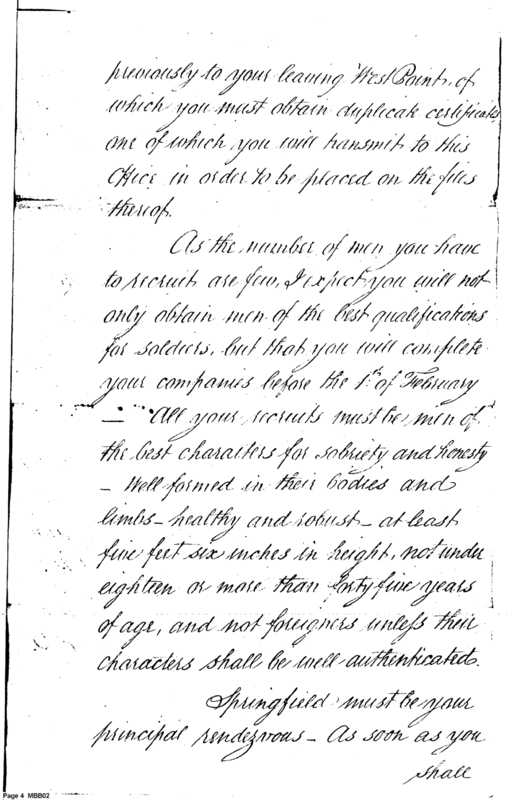 previously to your leaving West Point, of
which you must obtain duplicate certificates
one of which you will transmit to this
Office in order to be placed on the files
thereof.
As the number of men you have
to recruit are few, I expect you will not
only obtain men of the best qualifications
for soldiers, but that you will complete
your companies before the 1st. of February
— All your recruits must be men of
the best characters for sobriety and honesty
– Well formed in their bodies and
limbs – healthy and robust – at least
five feet six inches in height, not under
eighteen or more than forty five years
of age, and not foreigners unless their
characters shall be well authenticated.
Springfield must be your
principal rendezvous – As soon as you
shall
Page 4 MBB02